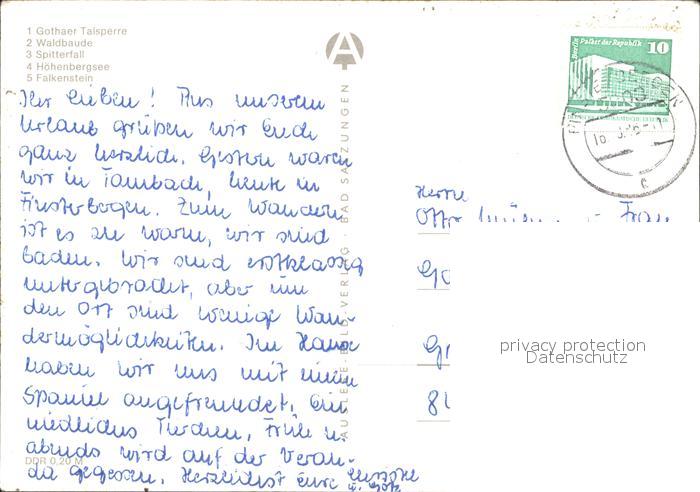 1 Gothaer Talsperre
2 Waldbaude
3 Spitterfall
4 Höhenbergsee
5 Falkenstein
Ihr Lieben! Aus unserem
Urlaub grüßen wir Euch
ganz herzlich. Gestern waren
wir in Tambach, heute in
Finsterbergen. Zum Wandern
ist es zu warm, wir sind
baden. Wir sind erstklassig
untergebracht, aber um
den Ort sind wenige Wan-
dermöglichkeiten. Im Hause
haben wir uns mit einem
Spaniel angefreundet, ein
niedliches Tierchen, Früh u.
abends wird auf der Veran-
da gegessen. Herzlichst Eure
DDR 0,20 M
AUSLESE-BILD-VERLAG · BAD SALZUNGEN
Berlin Palast der Republik
10
Herrn
Otto u. Frau
privacy protection
Datenschutz